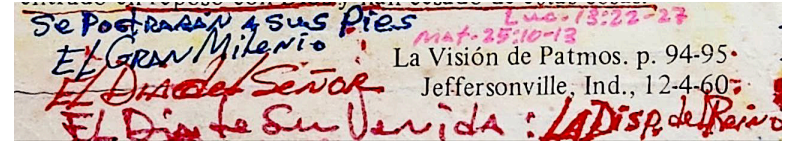 Se Postrarán a sus Pies
Luc-13:22-27
Mat-25:10-13
El Gran Milenio
La Visión de Patmos. p. 94-95.
El Dia del Señor
Jeffersonville, Ind., 12-4-60.
El Dia de Su Venida: La Disp. del Reino